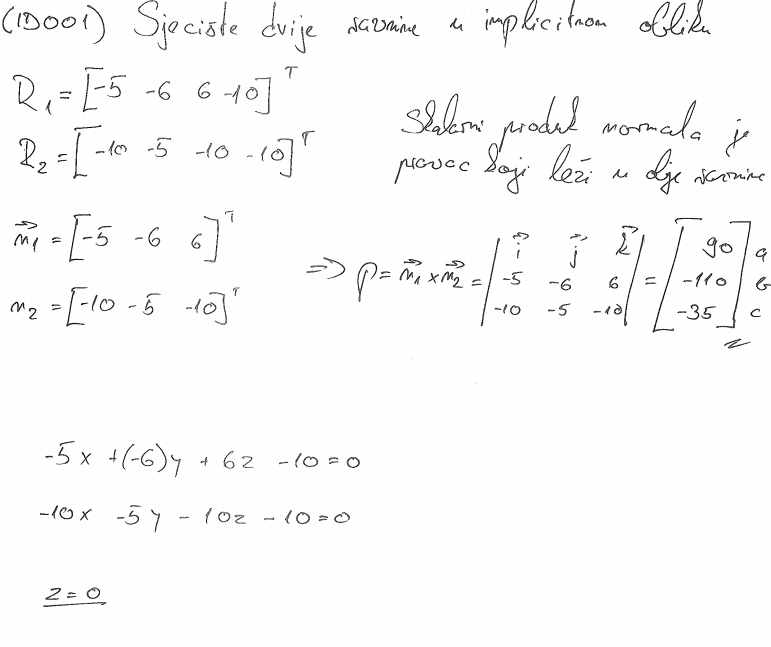 (ID001) Sjecište dvije ravnine u implicitnom obliku
R₁ = [-5 -6 6 -10]ᵀ
R₂ = [-10 -5 -10 -10]ᵀ
Skalarni produkt normala je
pravac koji leži u dvje ravnine
n₁ = [-5 -6 6]ᵀ
n₂ = [-10 -5 -10]ᵀ
⇒ p = n₁ × n₂ = | i j k | = [ 90 ] a
-5 -6 6 -110 b
-10 -5 -10 -35 c
-5x + (-6)y + 6z - 10 = 0
-10x - 5y - 10z - 10 = 0
z = 0